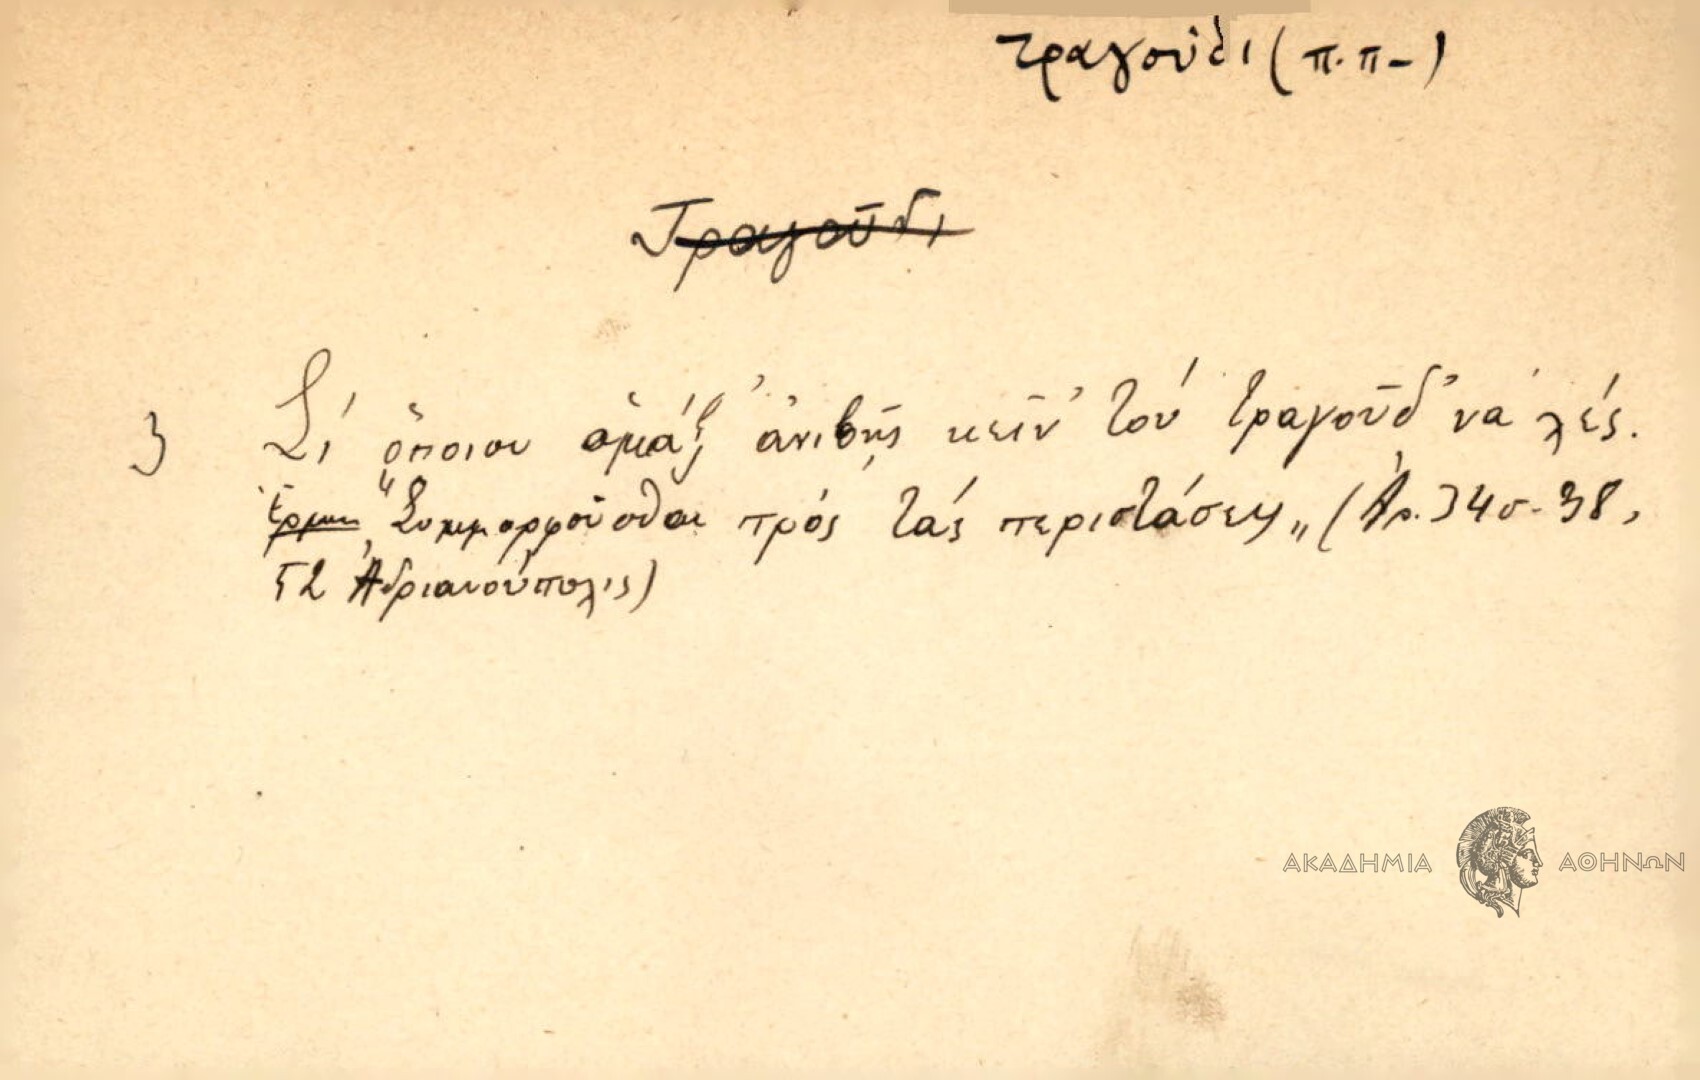 τραγούδι (π.π-)
Τραγοῦδι
3 Σί ὅποιου ἁμάξ' ἀνιβῇς κεῖν' τού τραγοῦδ' νά λές.
Ἑρμ. "Συμμορφοῦσθαι πρός τάς περιστάσεις„ (Ἀρ. 34 σ. 38,
52 Ἀδριανούπολις)
ΑΚΑΔΗΜΙΑ ΑΘΗΝΩΝ